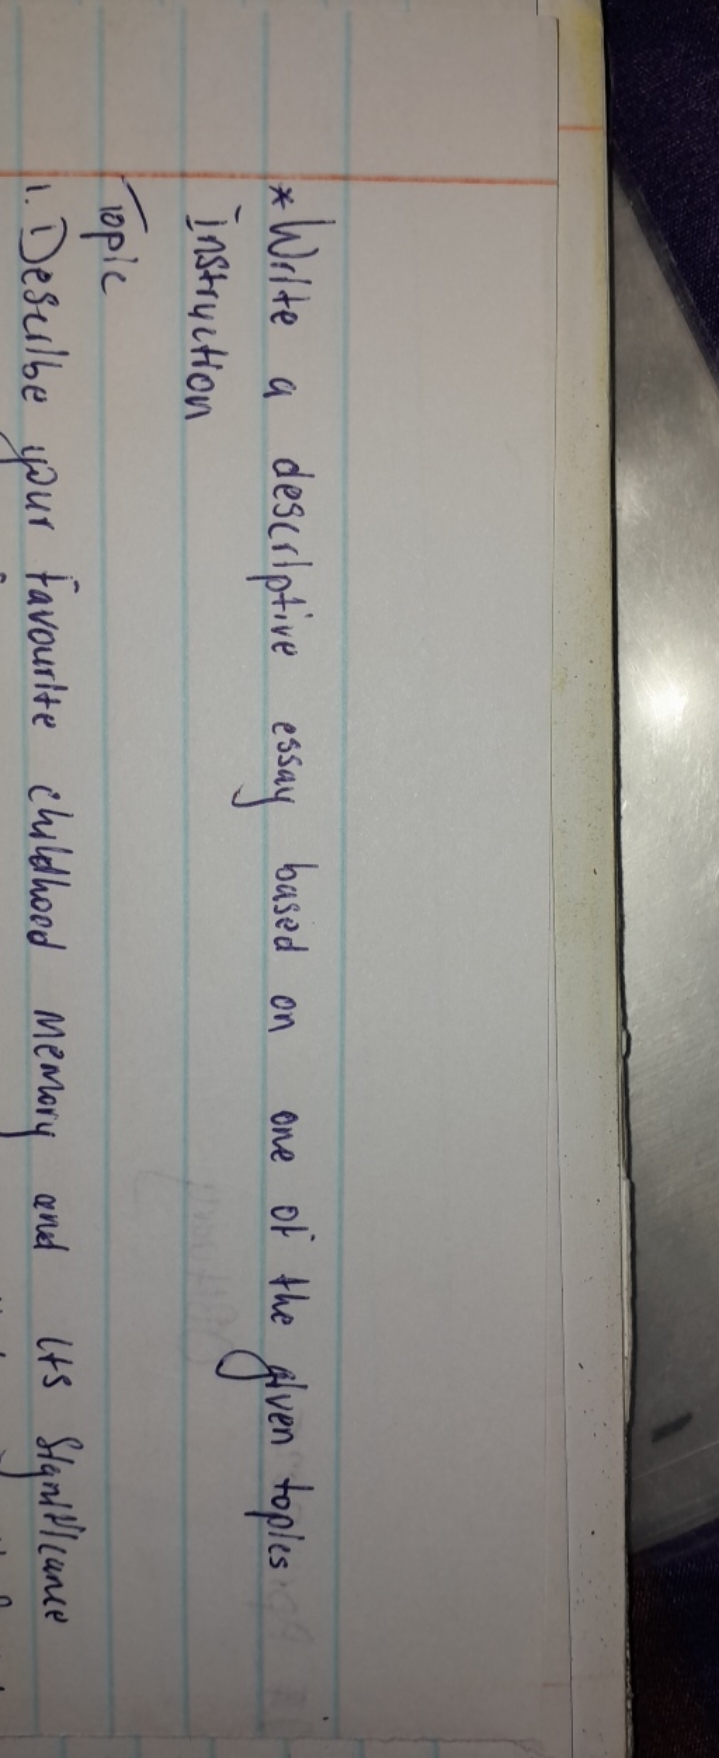 * Write a descriptive essay based on one of the given topics
instruction
Topic
1. Describe your favourite childhood memory and its significance